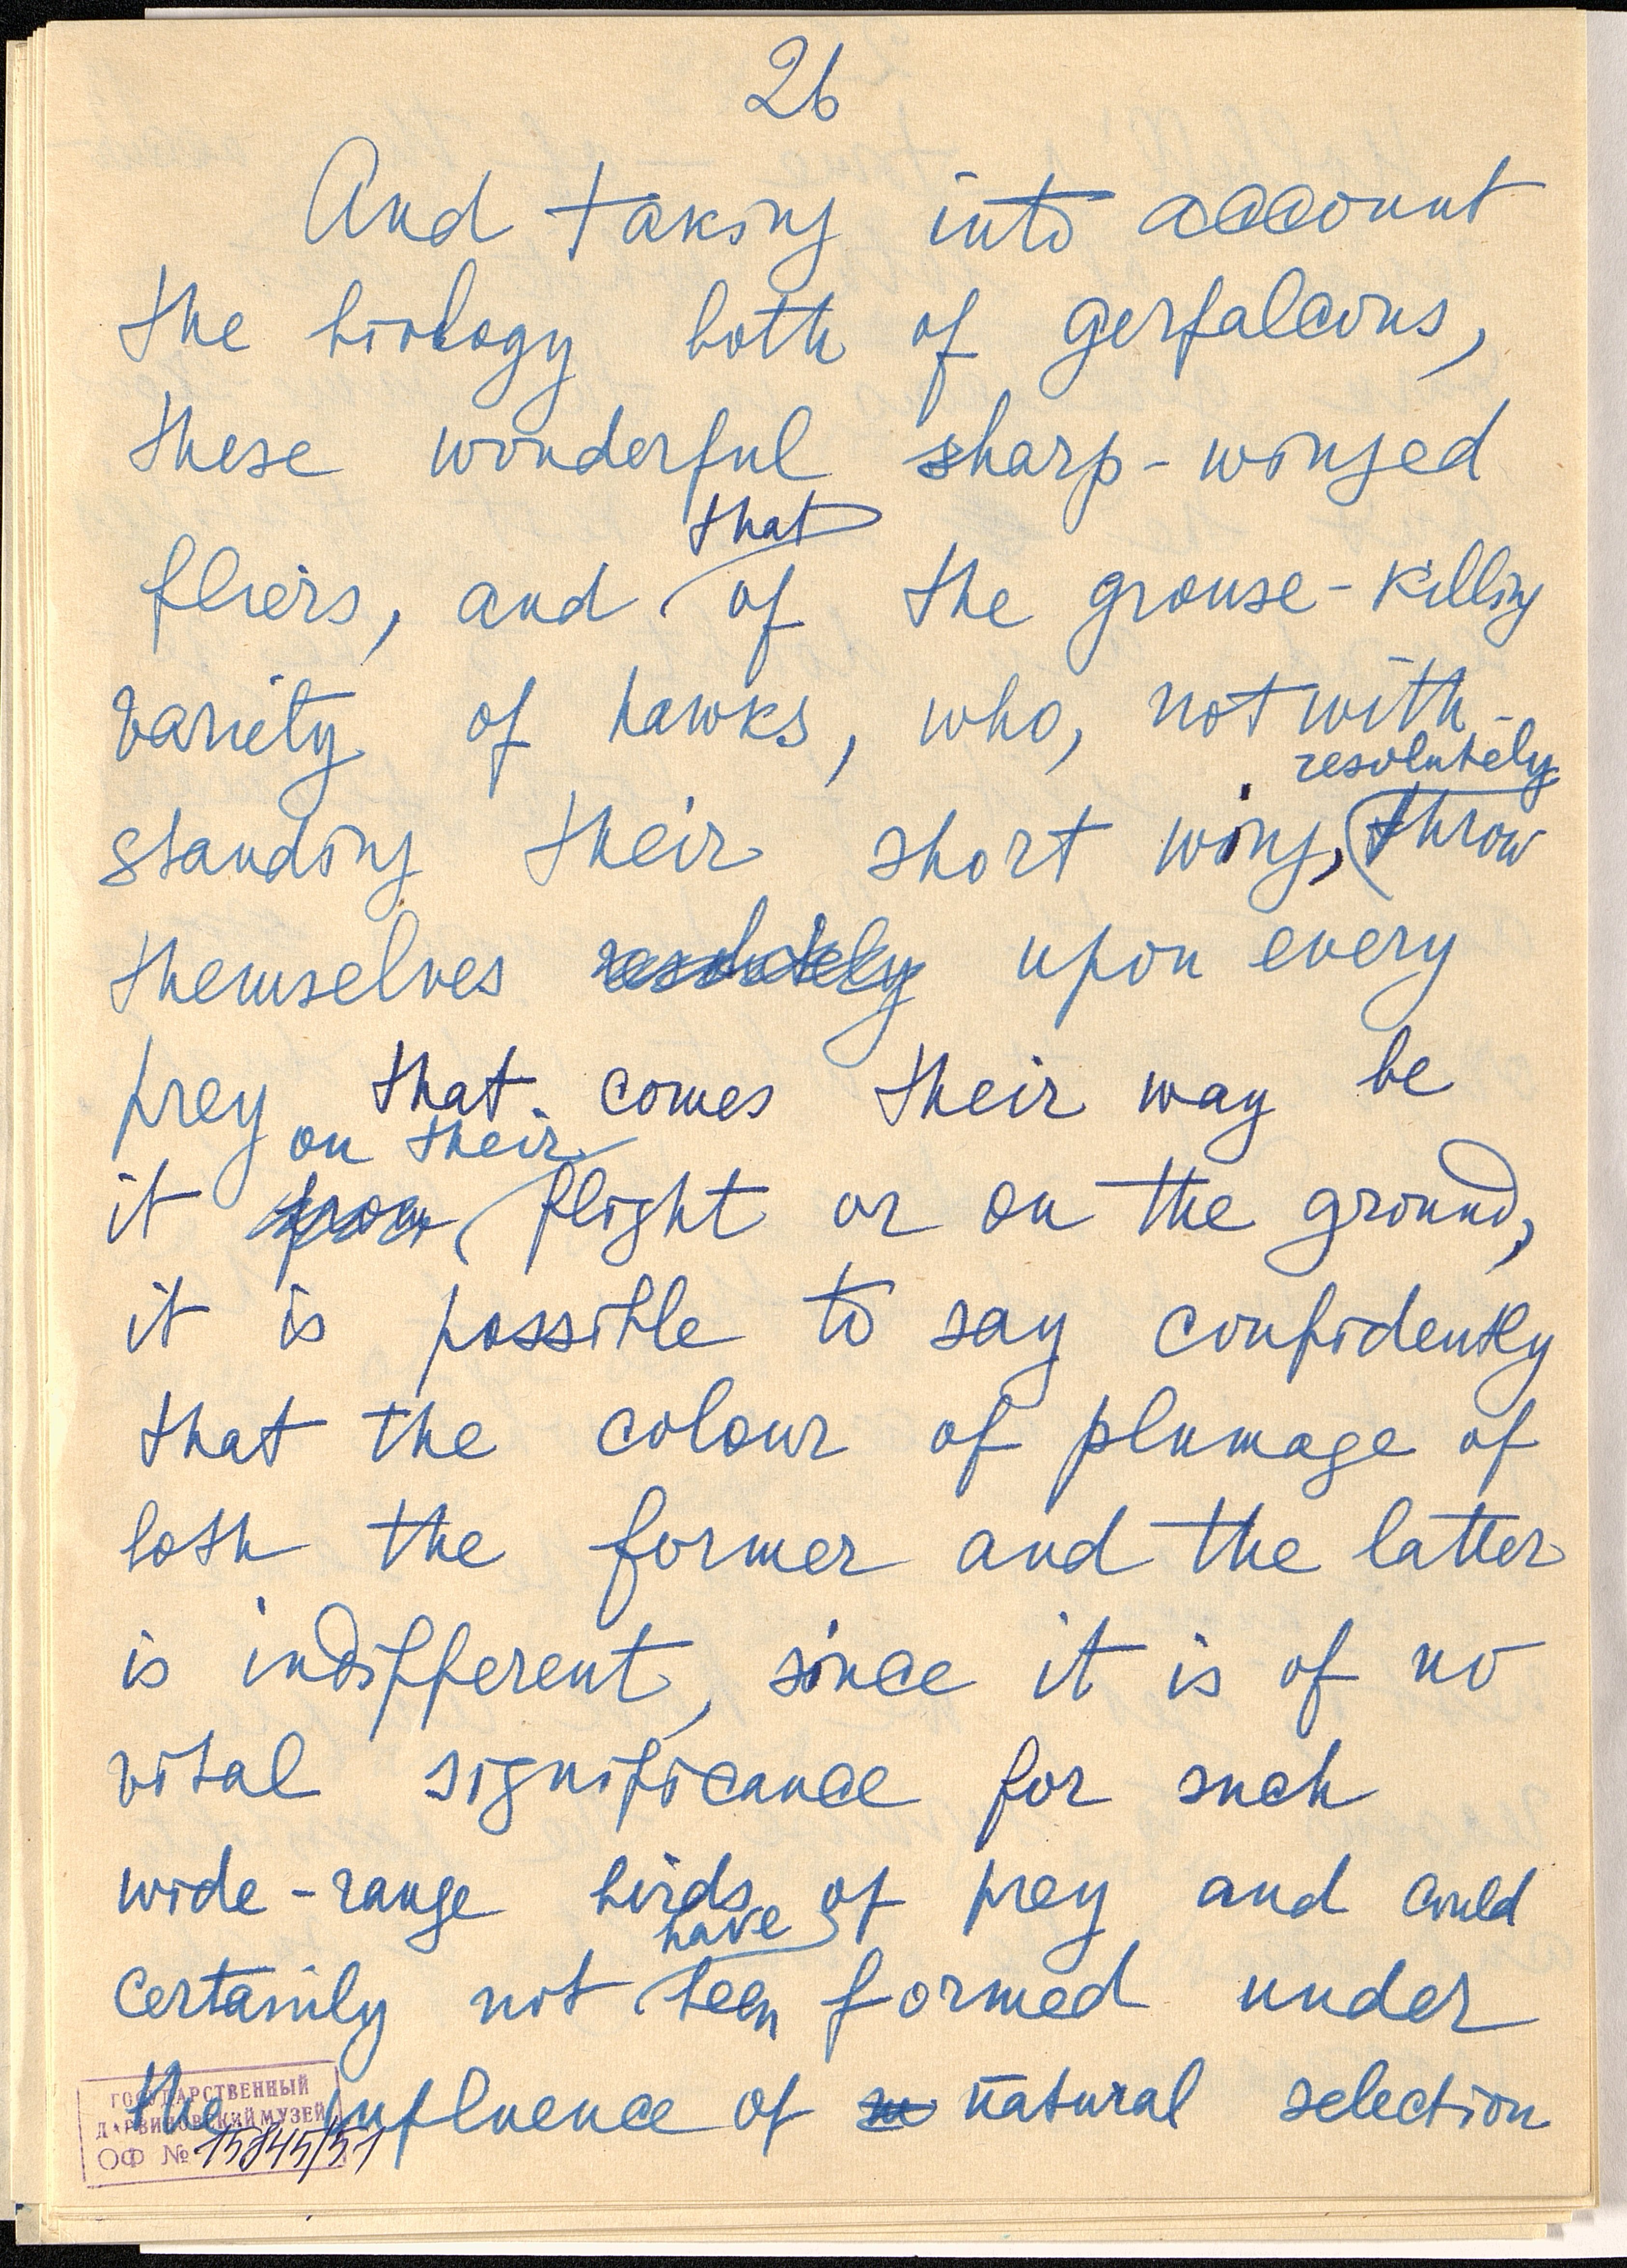 26
And taking into account
the biology both of gerfalcons,
these wonderful sharp-winged
that
fliers, and of the grouse-killing
variety of hawks, who, notwith-
resolutely
standing their short wings, throw
themselves resolutely upon every
prey that comes their way be
on their
it from flight or on the ground,
it is possible to say confidently
that the colour of plumage of
both the former and the latter
is indifferent, since it is of no
vital significance for such
wide-range birds of prey and could
have
certainly not been formed under
the influence of natural selection
ГОСУДАРСТВЕННЫЙ
ДАРВИНОВСКИЙ МУЗЕЙ
ОФ № 15845/51